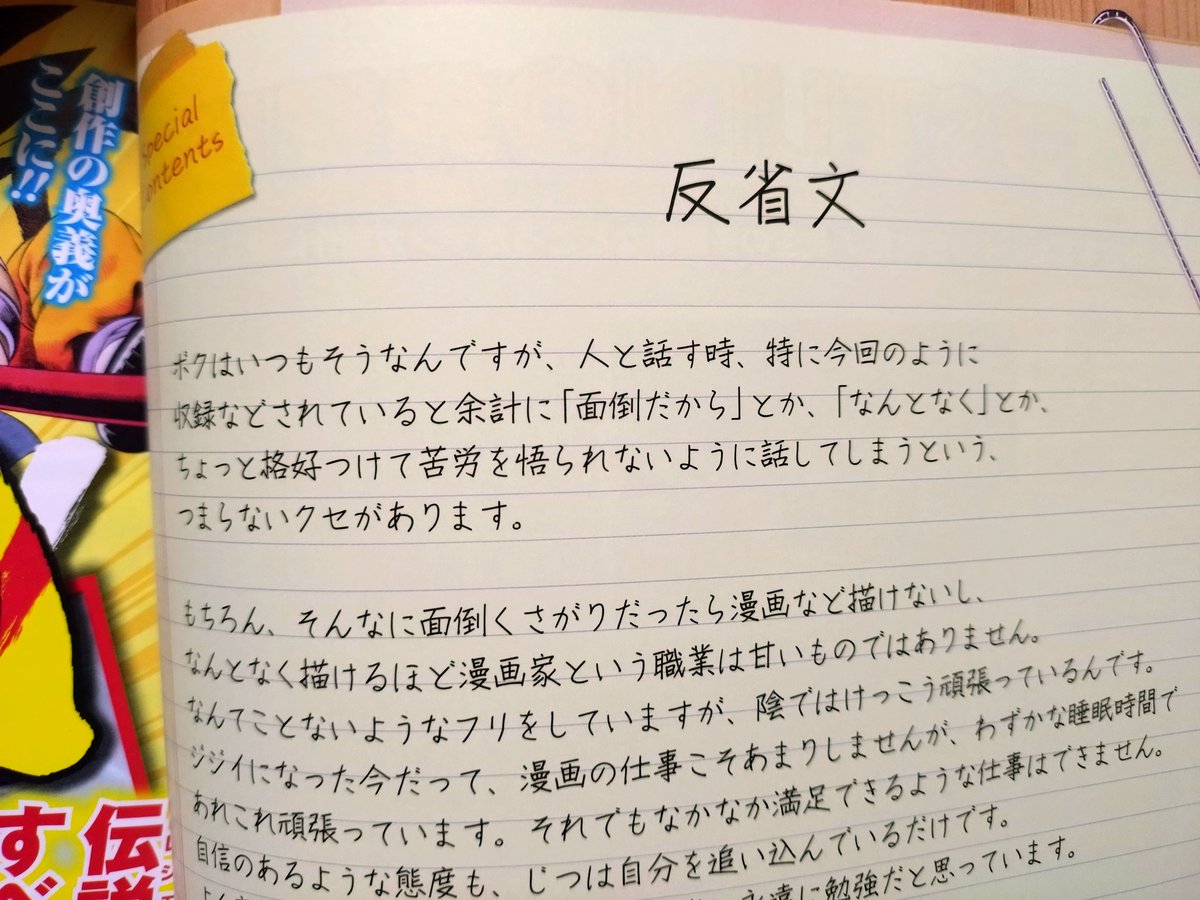 創作の奥義が
ここに!!
Special
Contents
反省文
ボクはいつもそうなんですが、人と話す時、特に今回のように
収録などされていると余計に「面倒だから」とか、「なんとなく」とか、
ちょっと格好つけて苦労を悟られないように話してしまうという、
つまらないクセがあります。
もちろん、そんなに面倒くさがりだったら漫画など描けないし、
なんとなく描けるほど漫画家という職業は甘いものではありません。
なんてことないようなフリをしていますが、陰ではけっこう頑張っているんです。
ジジイになった今だって、漫画の仕事こそあまりしませんが、わずかな睡眠時間で
あれこれ頑張っています。それでもなかなか満足できるような仕事はできません。
自信のあるような態度も、じつは自分を追い込んでいるだけです。
永遠に勉強だと思っています。
伝
すべ